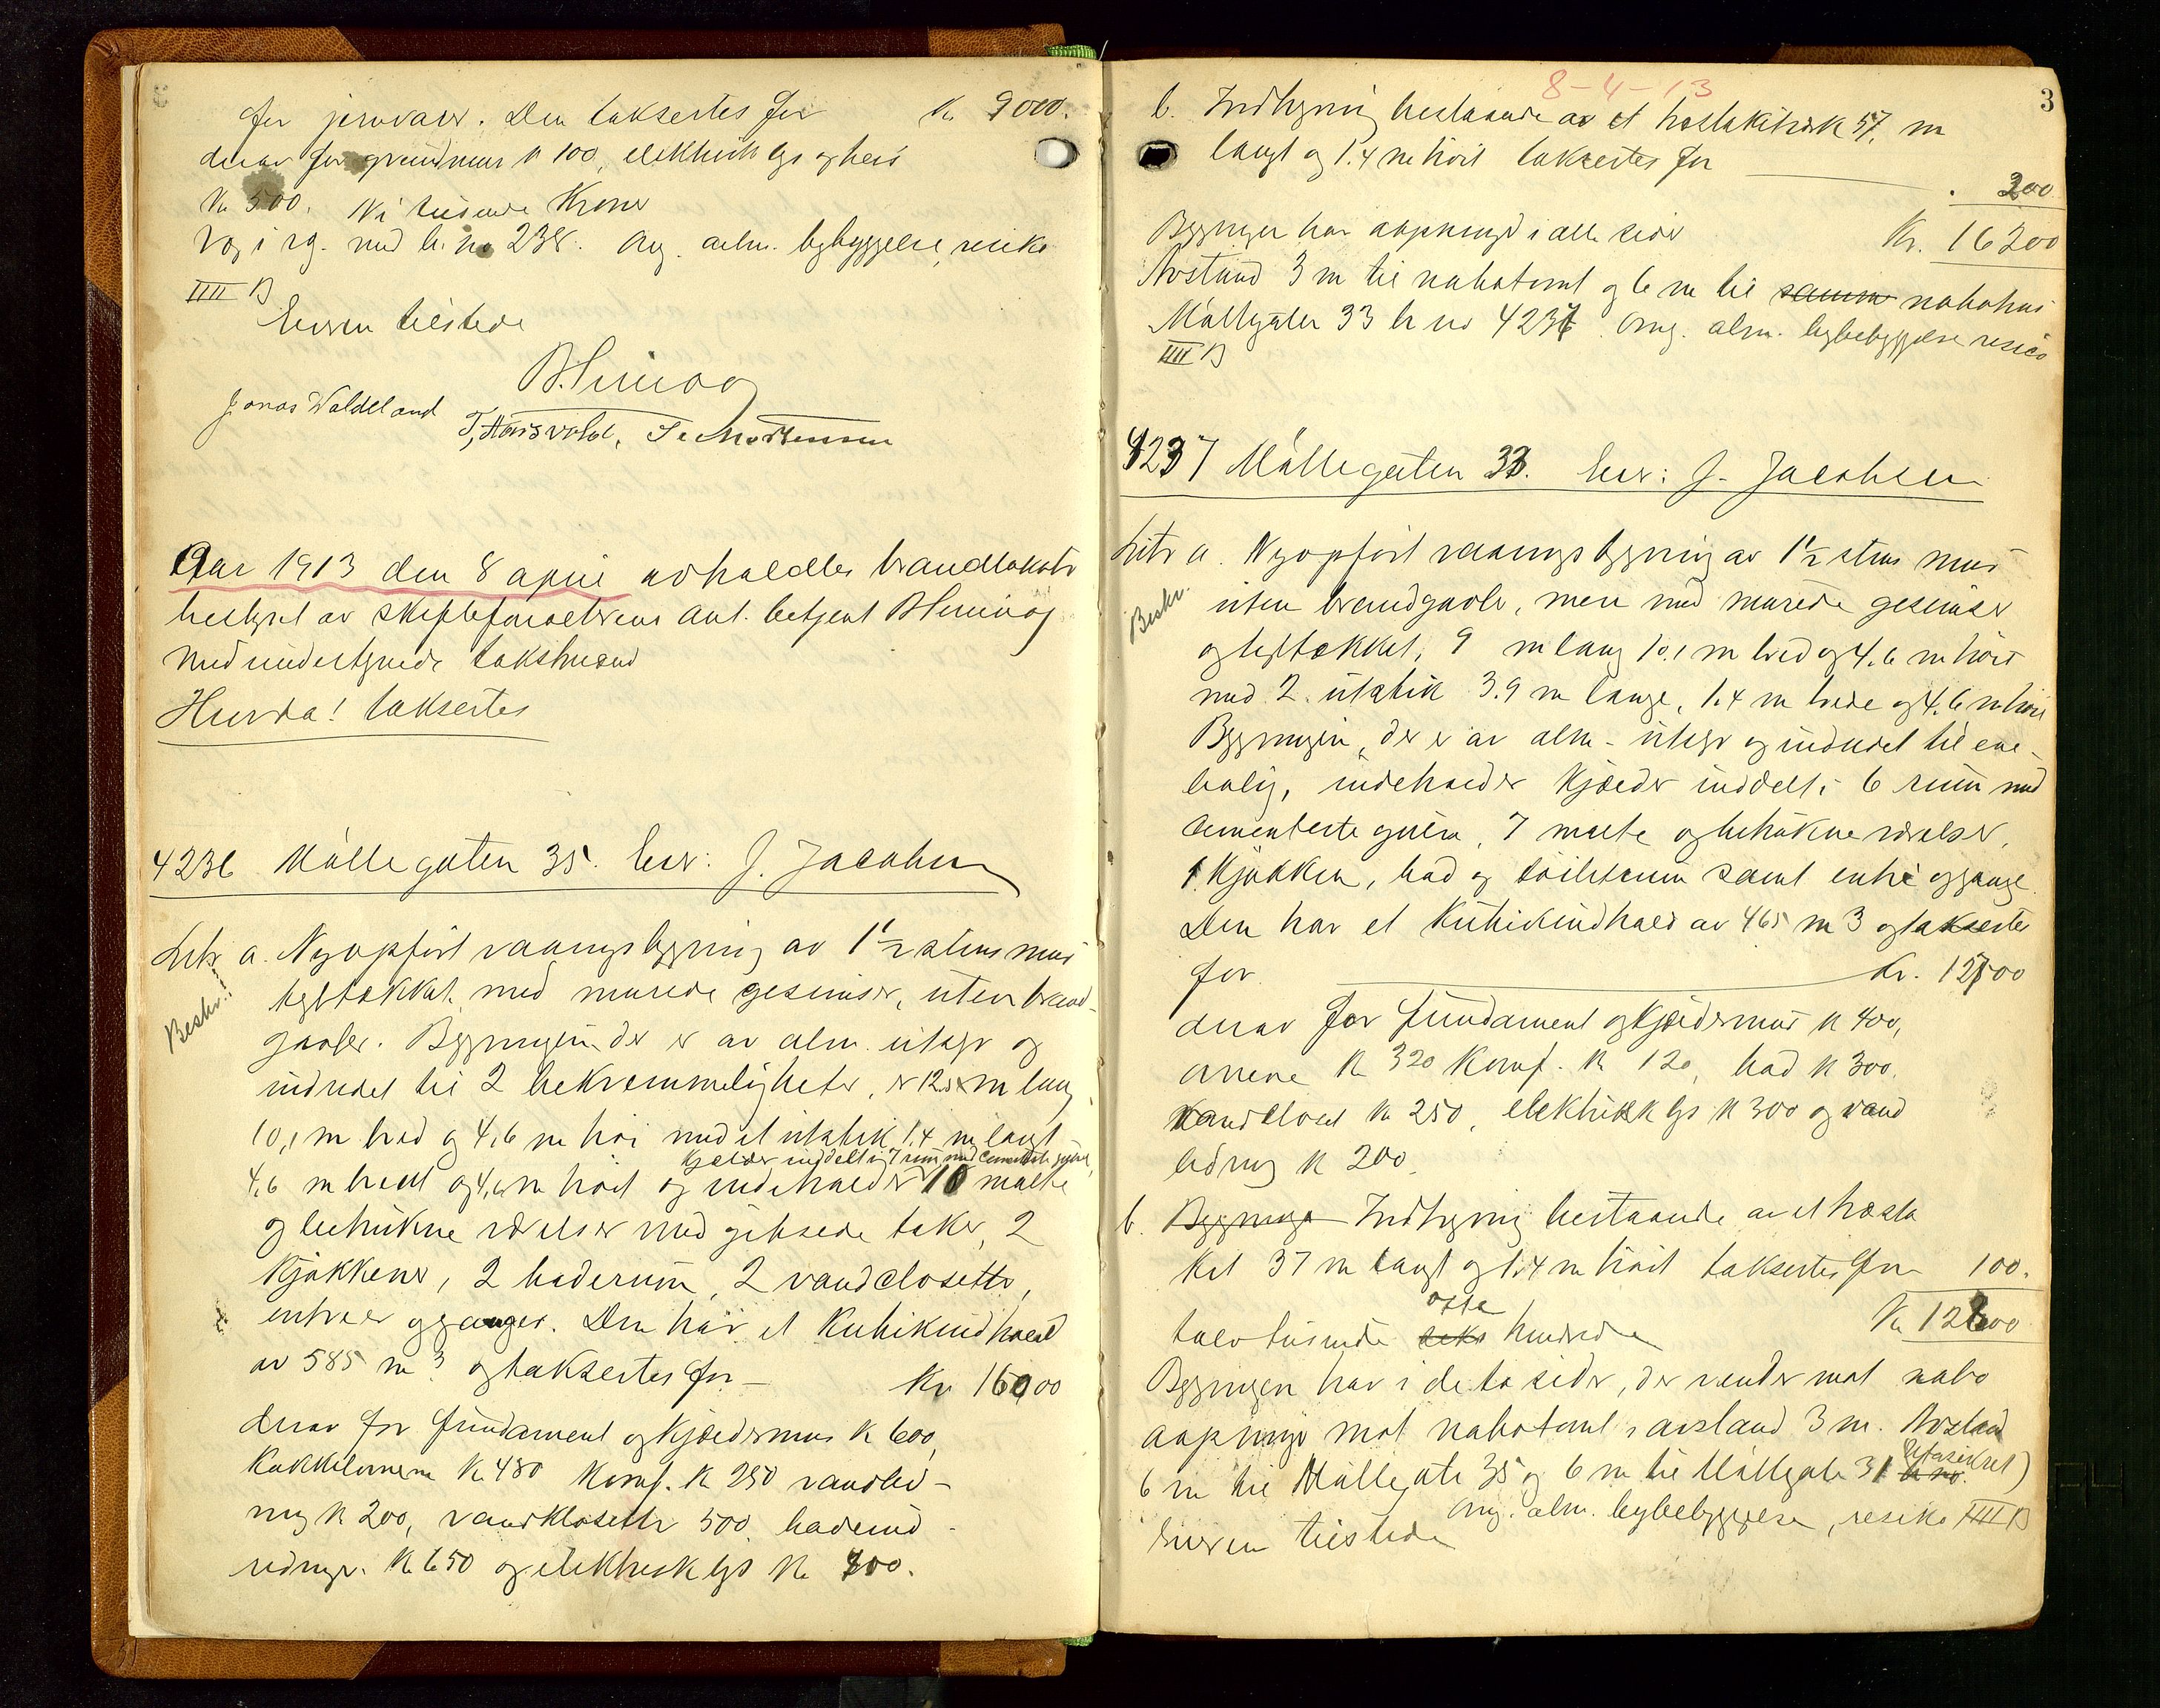 for jernvarer. Den taksertes for Kr 9000.
derav for grundmur k 100, elektrisk lys og heis
Kr 500. Ni tusinde Kroner
Væg i æg. med br. no 238. Omg. alm. bybyggelse, resiko
IIII B
Eieren tilstede
Jonas Waldeland
Aar 1913 den 8 april avholdtes brandtakst
bestyret av skifteforvalterens aut. betjent
med undertegnede takstmænd
Hvorda! taksertes
4236 Møllegaten 35. Eier: J. Jacobsen
Litr a. Nyopført vaaningsbygning av 1 1/2 stens mur
Beskr.!
tegltækket, med murede gesimser, uten brand-
gavler. Bygningen der er av alm. utstyr og
indredet til 2 bekvemmeligheter, er 12.5 m lang
10,1 m bred og 4,6 m høi med et utstik 1.4 m langt
Kjælder inddelt i 7 rum med cementerte gulve,
4,6 m bredt og 4,6 m høit og indeholder 10 malte
og betrukne værelser med gipsede taker, 2
Kjøkkener, 2 baderum, 2 vandclosetter,
entreer og ganger. Den har et Kubikindhold
av 585 m3 og taksertes for — Kr 16000
derav for fundament og Kjældermur k 600,
Kakkelovnene Kr. 480 Komf. K 250 vandled-
ning k 200, vandklosetter 500 badeind-
redninger. K 650 og elektrisk lys Kr 700.
8-4-13
3
b. Indhegning bestaaende av et hestakitværk 57, m
langt og 1.4 m høit taksertes for 200
Bygningen har aapninger i alle sider Kr. 16200
Avstand 3 m til nabotomt og 6 m til samme nabohus
Møllegaten 33 br no 4237. Omg. alm. bybebyggelse resico
IIII B
4237 Møllegaten 33. Eier: J. Jacobsen
Litr a. Nyopført vaaningsbygning av 1 1/2 stens mur
Beskr.
uten brandgavle, men med murede gesimser
og tegltækket, 9 m lang 10.1 m bred og 4.6 m høi
med 2 utstik 3.9 m lange, 1.4 m brede og 4.6 m høie
Bygningen, der er av alm. utstyr og indredet til ene-
bolig, indeholder Kjælder inddelt i 6 rum med
cementerte gulve, 7 malte og betrukne værelser,
1 Kjøkken, bad og toiletrum samt entré og gange.
Den har et Kubikindhold av 465 m3 og taksertes
for Kr. 12700
derav for fundament og Kjældermur k 400,
ovnene K 320 Komf. K 120, bad k 300.
Vandcloset Kr 250, elektrisk lys k 300 og vand
ledning k 200.
b. Bygninge Indhegning bestaaende av et hæsta
Ket 37 m langt og 1.4 m høit taksertes for 100.
otte
tolv tusinde seks hundrede Kr 12800
Bygningen har i de to sider, der vender mot nabo
aapninger mot nabotomt i avstand 3 m. Avstand
6 m til Møllegate 35 og 6 m til Møllegate 31 br no. (Uforsikret)
Omg. alm. bybebyggelse, resiko IIII B
Eieren tilstede